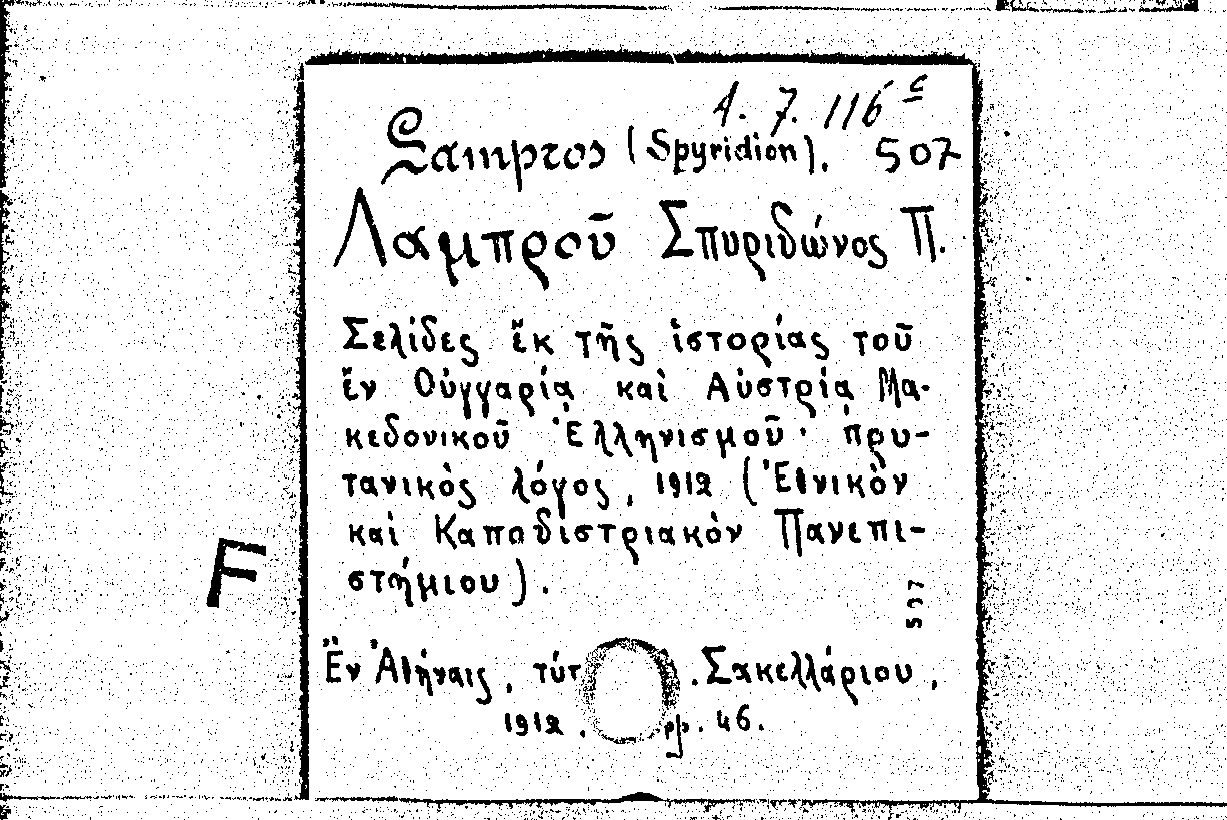 4. 7. 116 c
Lampros (Spyridion). 507
Λαμπροῦ Σπυριδώνος Π.
Σελίδες ἔκ τῆς ἱστορίας τοῦ
ἔν Οὑγγαρίᾳ καὶ Αὐστρίᾳ Μα-
κεδονικοῦ Ἑλληνισμοῦ· πρυ-
τανικὸς λόγος, 1912 (Ἐθνικὸν
καὶ Καποδιστριακὸν Πανεπι-
στήμιου).
507
F
Ἔν Ἀθήναις, τύπ . Σακελλάριου,
1912. pp. 46.